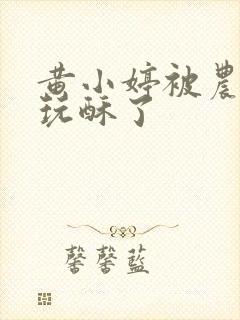 黄小婷被農
玩酥了
馨馨藍